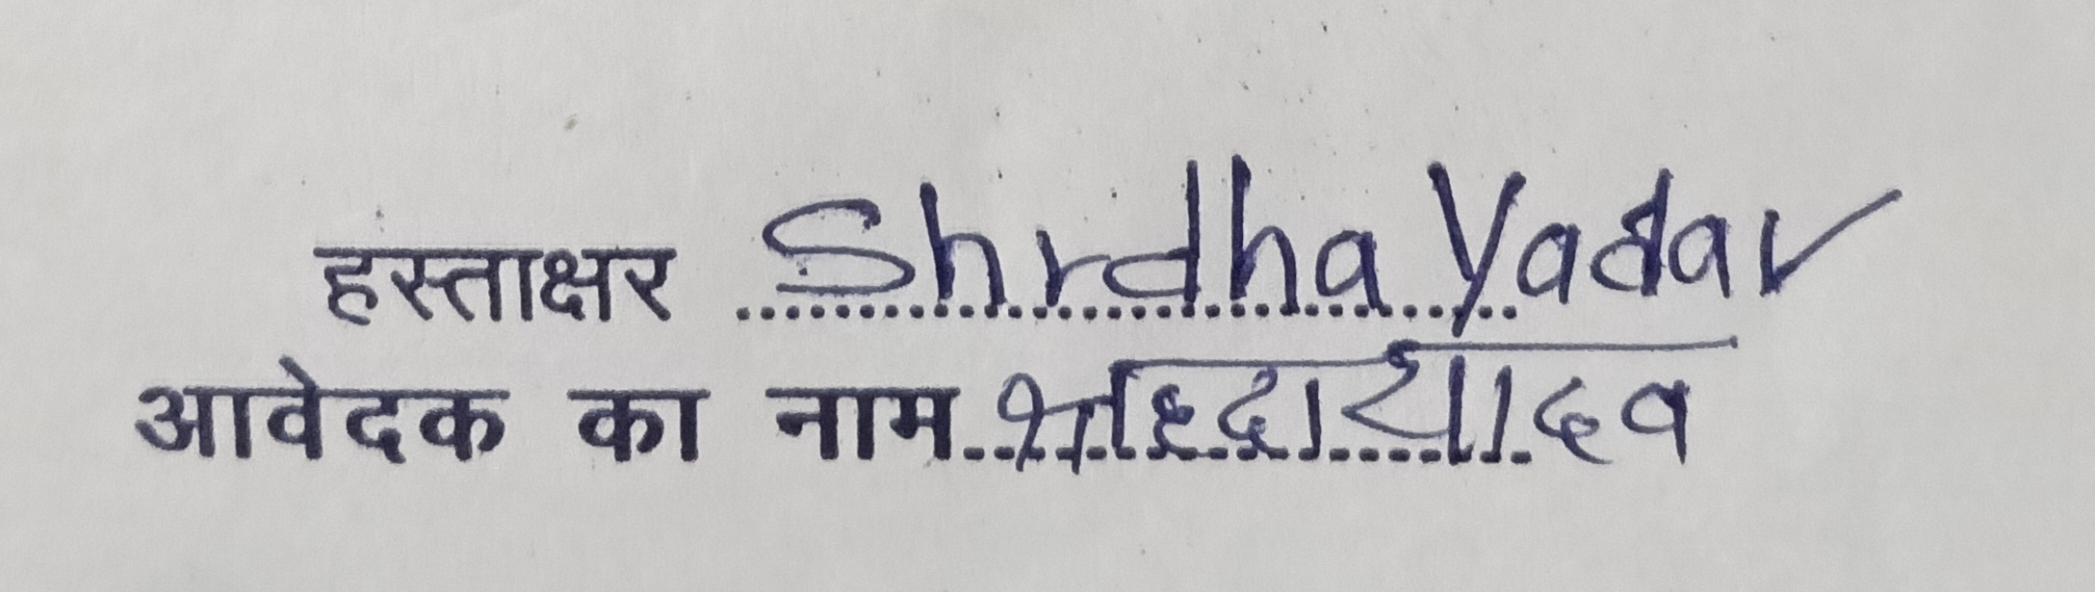 हस्ताक्षर Shrdha Yadav
आवेदक का नाम श्रध्दा यादव